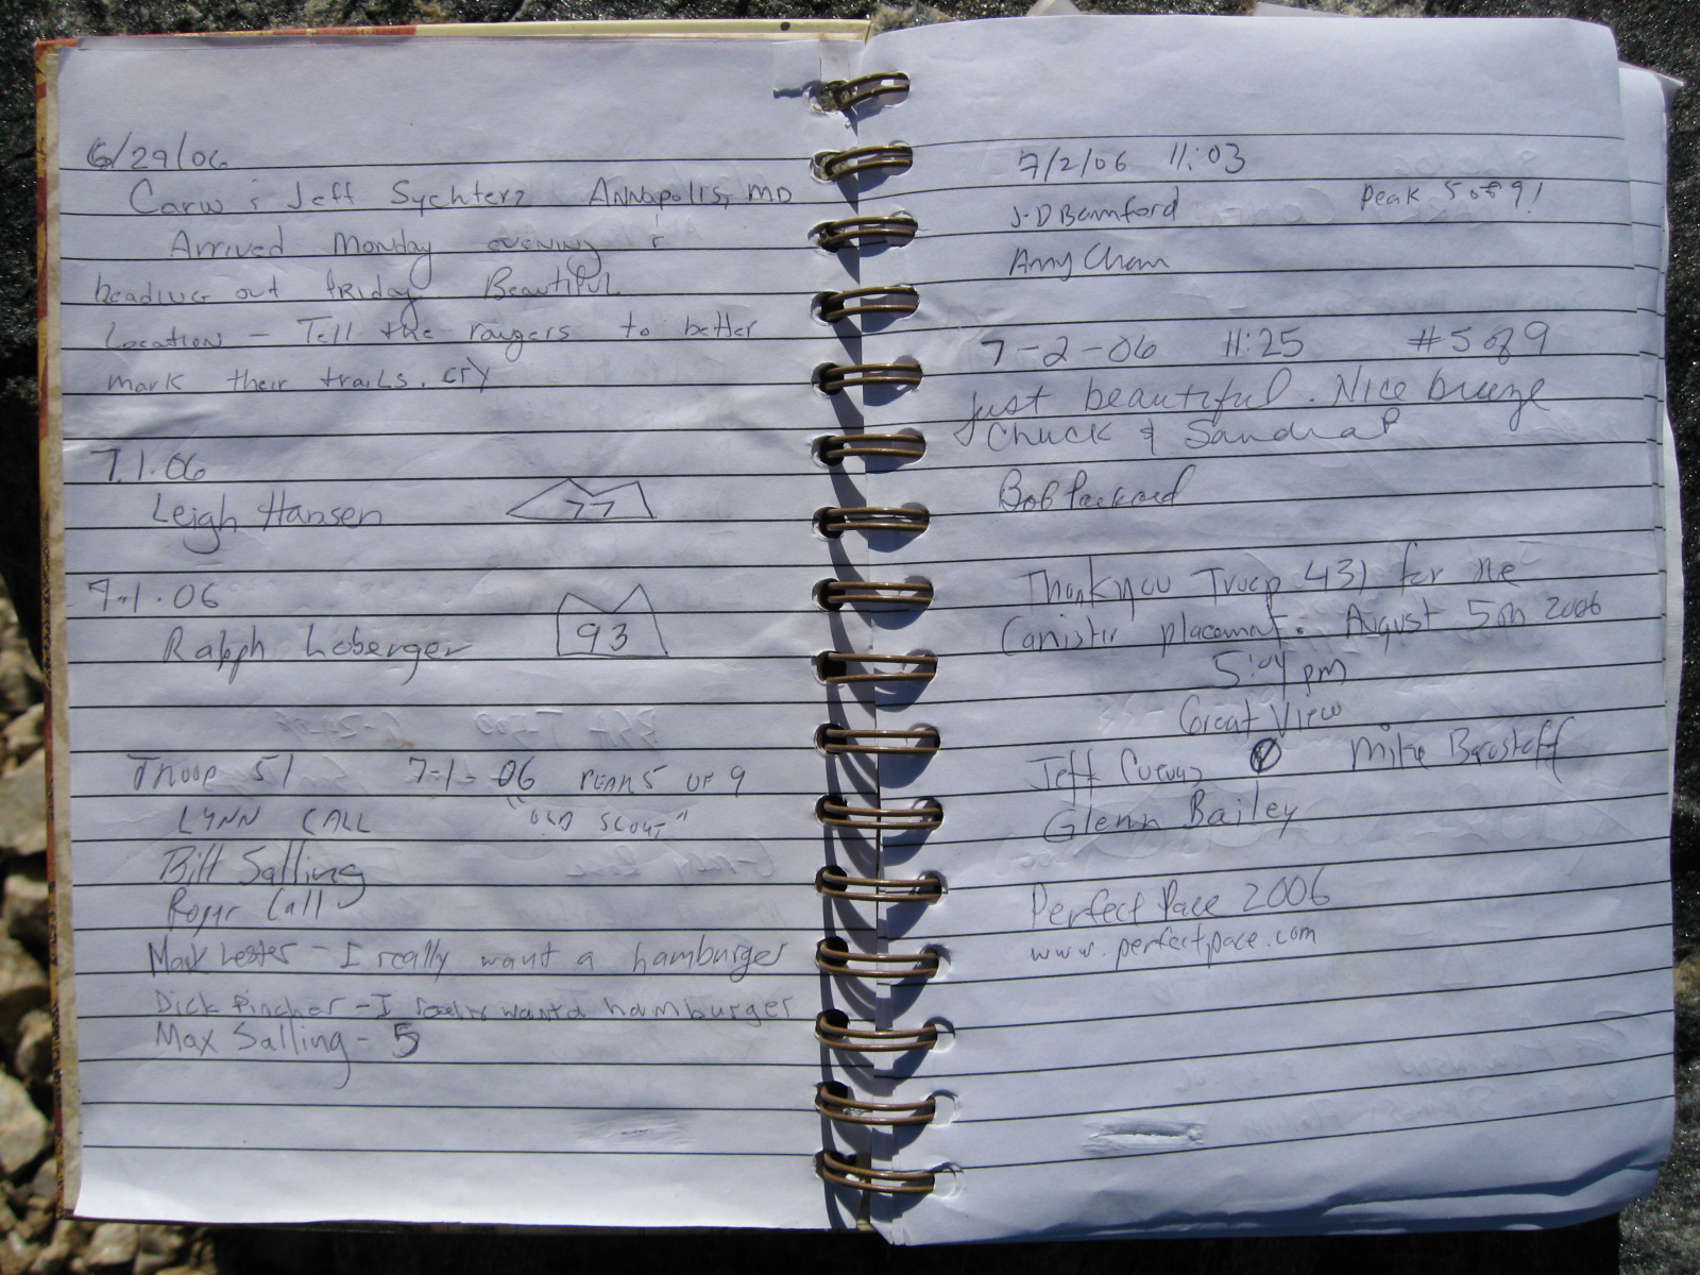 6/29/06
Jeff Sychterz Annapolis, MD
Arrived Monday evening &
heading out friday. Beautiful
Location - Tell the rangers to better
mark their trails.
7.1.06
Leigh Hansen 77
7.1.06
Ralph Loberger 93
Troop 51 7-1-06 PEAK 5 OF 9
LYNN CALL "OLD SCOUT"
Bill Salling
Roger Call
Mark Lester - I really want a hamburger
Dick Pincher - I really want a hamburger
Max Salling - 5
7/2/06 11:03
J-D Bamford Peak 5 of 9!
Amy Chan
7-2-06 11:25 #5 of 9
Just beautiful. Nice breeze
Chuck & Sandra P
Bob Packard
Thankyou Troop 431 for the
Canister placemat. August 5th 2006
5:04 pm
Great View
Jeff Mike
Glenn Bailey
Perfect Pace 2006
www.perfectpace.com